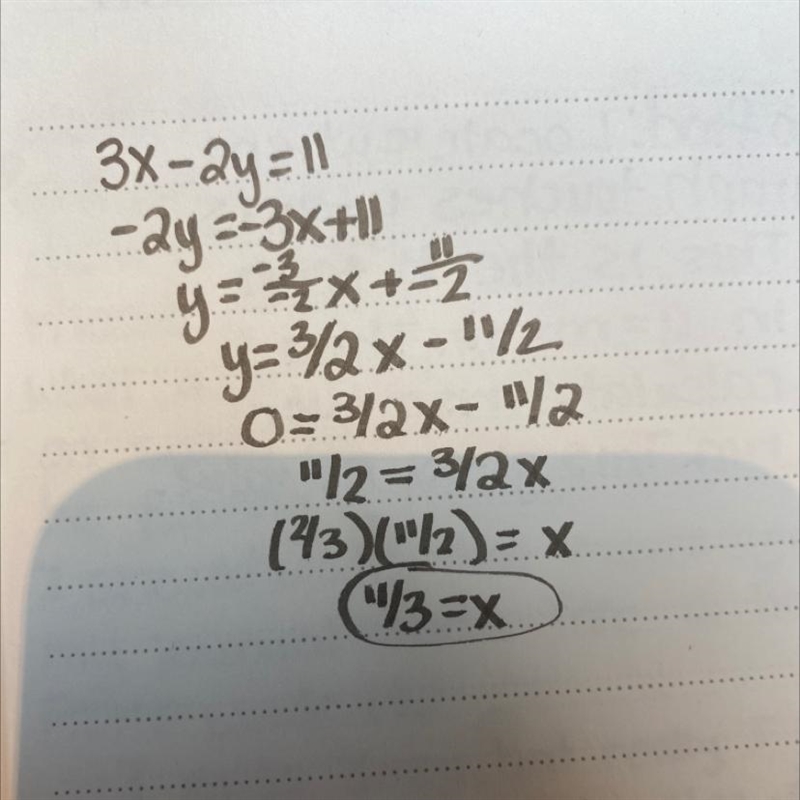 3x-2y=11
-2y=-3x+11
y=-3/-2x+11/-2
y=3/2x-11/2
0=3/2x-11/2
11/2=3/2x
(2/3)(11/2)=x
11/3=x